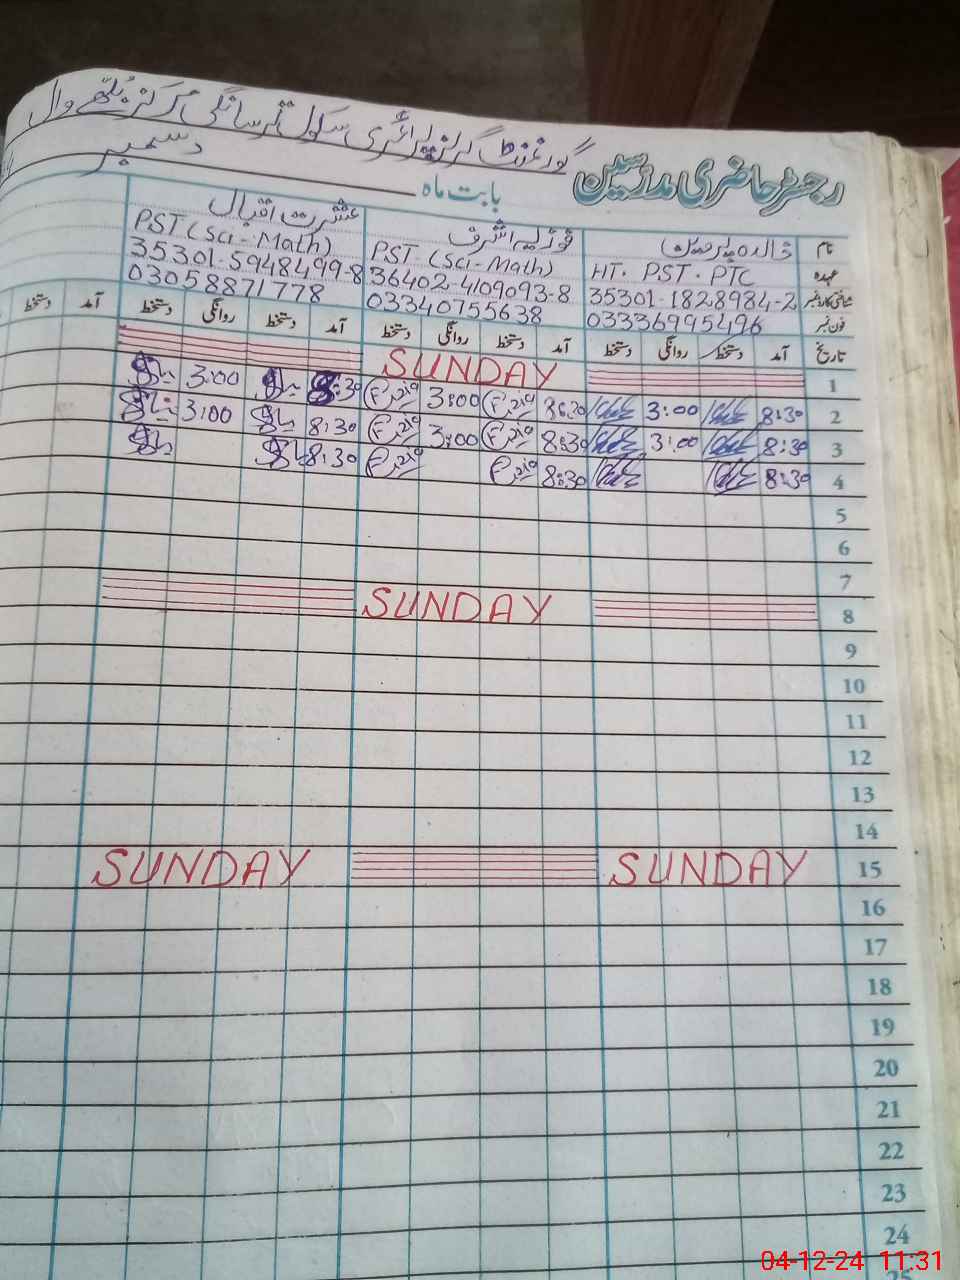 گورنمنٹ گرلز پرائمری سکول ترسانگی مرکز بُلھے وال
رجسٹر حاضری مدرسین
بابت ماہ دسمبر
نام خالدہ پروین فوزیہ اشرف عشرت اقبال
عہدہ HT. PST. PTC PST (Sci-Math) PST (Sci-Math)
شناختی کارڈ نمبر 35301-1828984-2 36402-4109093-8 35301-5948499-8
فون نمبر 03336995496 03340755638 03058871778
تاریخ آمد دستخط روانگی دستخط آمد دستخط روانگی دستخط آمد دستخط روانگی دستخط آمد دستخط
1 SUNDAY
2 8:30 3:00 8:30 3:00 8:30 3:00
3 8:30 3:00 8:30 3:00 8:30 3:00
4 8:30 8:30 8:30
5
6
7
8 SUNDAY
9
10
11
12
13
14
15 SUNDAY SUNDAY
16
17
18
19
20
21
22
23
24
25
04-12-24 11:31